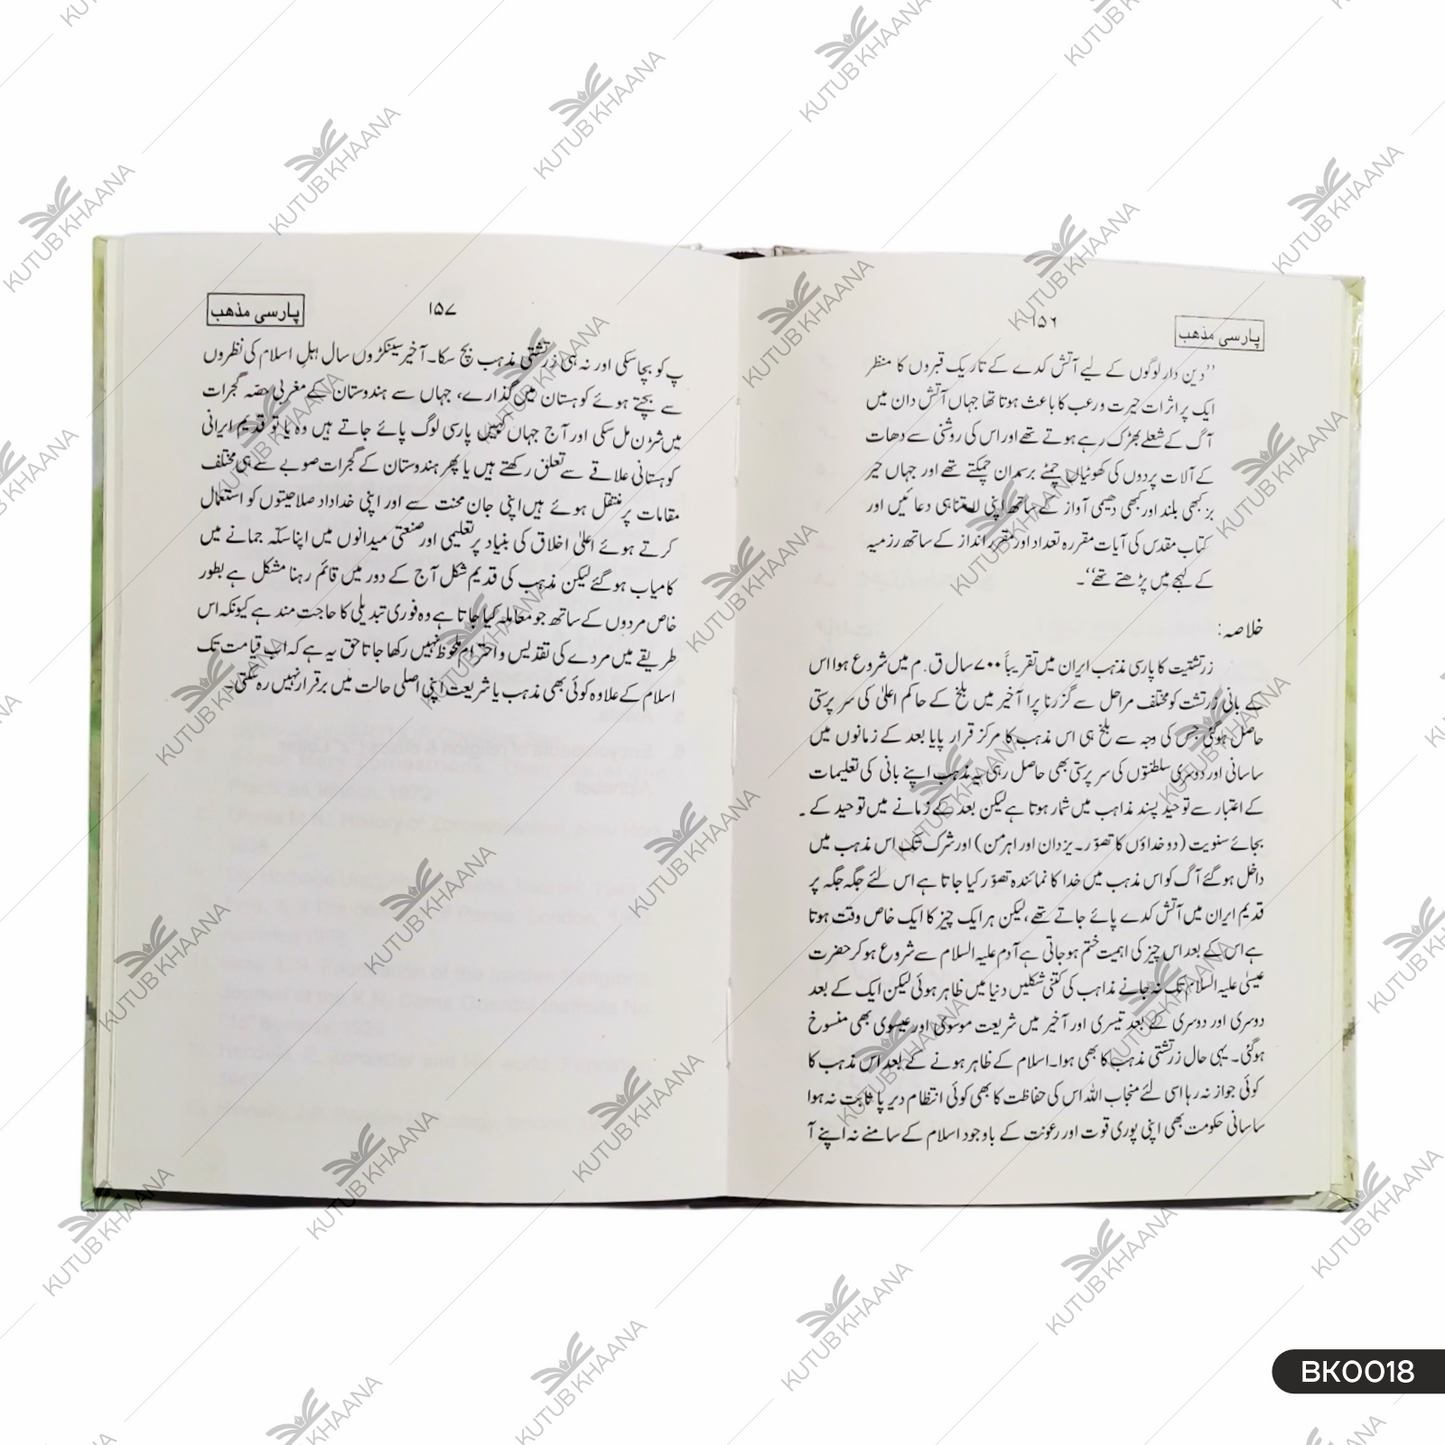 پارسی مذھب
۱۵۶
’’دین دار لوگوں کے لیے آتش کدے کے تاریک قبروں کا منظر
ایک پر اثرات حیرت و رعب کا باعث ہوتا تھا جہاں آتش دان میں
آگ کے شعلے بھڑک رہے ہوتے تھے اور اس کی روشنی سے دھات
کے آلات پردوں کی کھونٹیاں چمٹے برسمران چمکتے تھے اور جہاں حیر
بز کبھی بلند اور کبھی دھیمی آواز کے ساتھ اپنی لامتناہی دعائیں اور
کتاب مقدس کی آیات مقررہ تعداد اور مقرر انداز کے ساتھ رزمیہ
کے لہجے میں پڑھتے تھے‘‘۔
خلاصہ:
زرتشتیت کا پارسی مذہب ایران میں تقریباً ۷۰۰ سال ق.م میں شروع ہوا اس
کے بانی زرتشت کو مختلف مراحل سے گزرنا پرا آخیر میں بلخ کے حاکم اعلیٰ کی سر پرستی
حاصل ہوگئی جس کی وجہ سے بلخ ہی اس مذہب کا مرکز قرار پایا بعد کے زمانوں میں
ساسانی اور دوسری سلطنتوں کی سر پرستی بھی حاصل رہی یہ مذہب اپنے بانی کی تعلیمات
کے اعتبار سے توحید پسند مذاہب میں شمار ہوتا ہے لیکن بعد کے زمانے میں توحید کے
بجائے سنویت (دو خداؤں کا تصوّر۔یزدان اور اہرمن) اور شرک تک اس مذہب میں
داخل ہو گئے آگ کو اس مذہب میں خدا کا نمائندہ تصوّر کیا جاتا ہے اس لئے جگہ جگہ پر
قدیم ایران میں آتش کدے پائے جاتے تھے، لیکن ہر ایک چیز کا ایک خاص وقت ہوتا
ہے اس کے بعد اس چیز کی اہمیت ختم ہو جاتی ہے آدم علیہ السلام سے شروع ہو کر حضرت
عیسیٰ علیہ السلام تک نہ جانے مذاہب کی کتنی شکلیں دنیا میں ظاہر ہوئی لیکن ایک کے بعد
دوسری اور دوسری کے بعد تیسری اور آخیر میں شریعت موسوی اور عیسوی بھی منسوخ
ہوگئی۔ یہی حال زرتشتی مذہب کا بھی ہوا۔اسلام کے ظاہر ہونے کے بعد اس مذہب کا
کوئی جواز نہ رہا اسی لئے منجاب اللہ اس کی حفاظت کا بھی کوئی انتظام دیر پا ثابت نہ ہوا
ساسانی حکومت بھی اپنی پوری قوت اور رعونت کے باوجود اسلام کے سامنے نہ اپنے آ
پارسی مذھب
۱۵۷
پ کو بچا سکی اور نہ ہی زرتشتی مذہب بچ سکا۔ آخیر سینکڑوں سال اہلِ اسلام کی نظروں
سے بچتے ہوئے کوہستان میں گذارے، جہاں سے ہندوستان کے مغربی حصّہ گجرات
میں شرن مل سکی اور آج جہاں کہیں پارسی لوگ پائے جاتے ہیں وہ یا تو قدیم ایرانی
کوہستانی علاقے سے تعلق رکھتے ہیں یا پھر ہندوستان کے گجرات صوبے سے ہی مختلف
مقامات پر منتقل ہوئے ہیں اپنی جان محنت سے اور اپنی خداداد صلاحیتوں کو استعمال
کرتے ہوئے اعلیٰ اخلاق کی بنیاد پر تعلیمی اور صنعتی میدانوں میں اپنا سکّہ جمانے میں
کامیاب ہو گئے لیکن مذہب کی قدیم شکل آج کے دور میں قائم رہنا مشکل ہے بطور
خاص مردوں کے ساتھ جو معاملہ کیا جاتا ہے وہ فوری تبدیلی کا حاجت مند ہے کیونکہ اس
طریقے میں مردے کی تقدیس و احترام ملحوظ نہیں رکھا جاتا حق یہ ہے کہ اب قیامت تک
اسلام کے علاوہ کوئی بھی مذہب یا شریعت اپنی اصلی حالت میں برقرار نہیں رہ سکتی۔
KUTUB KHAANA
BK0018